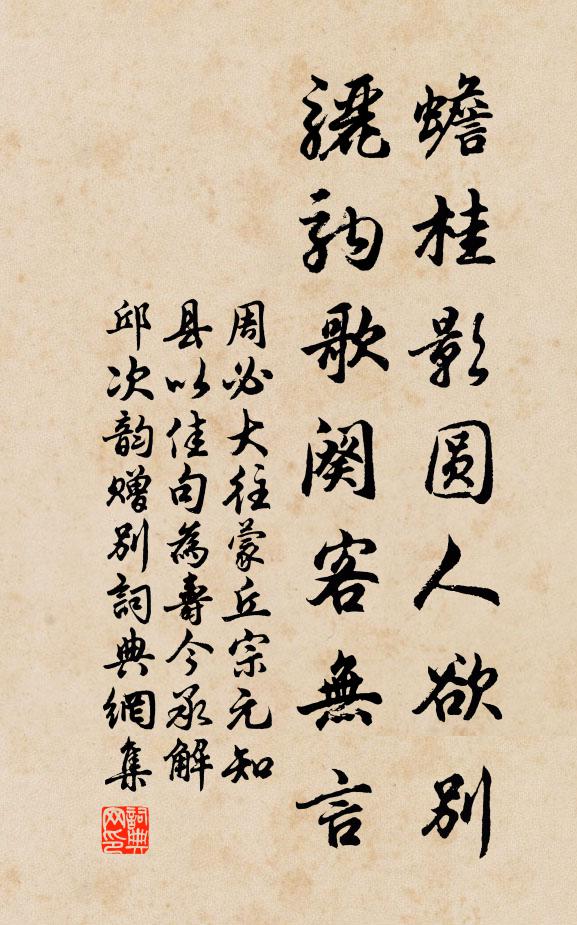 蟾桂影圓人欲別
驪駒歌闋客無言
周必大往蒙丘宗元知
县以佳句為壽今承解
邱次韵赠别詞典網集
詞典
网印